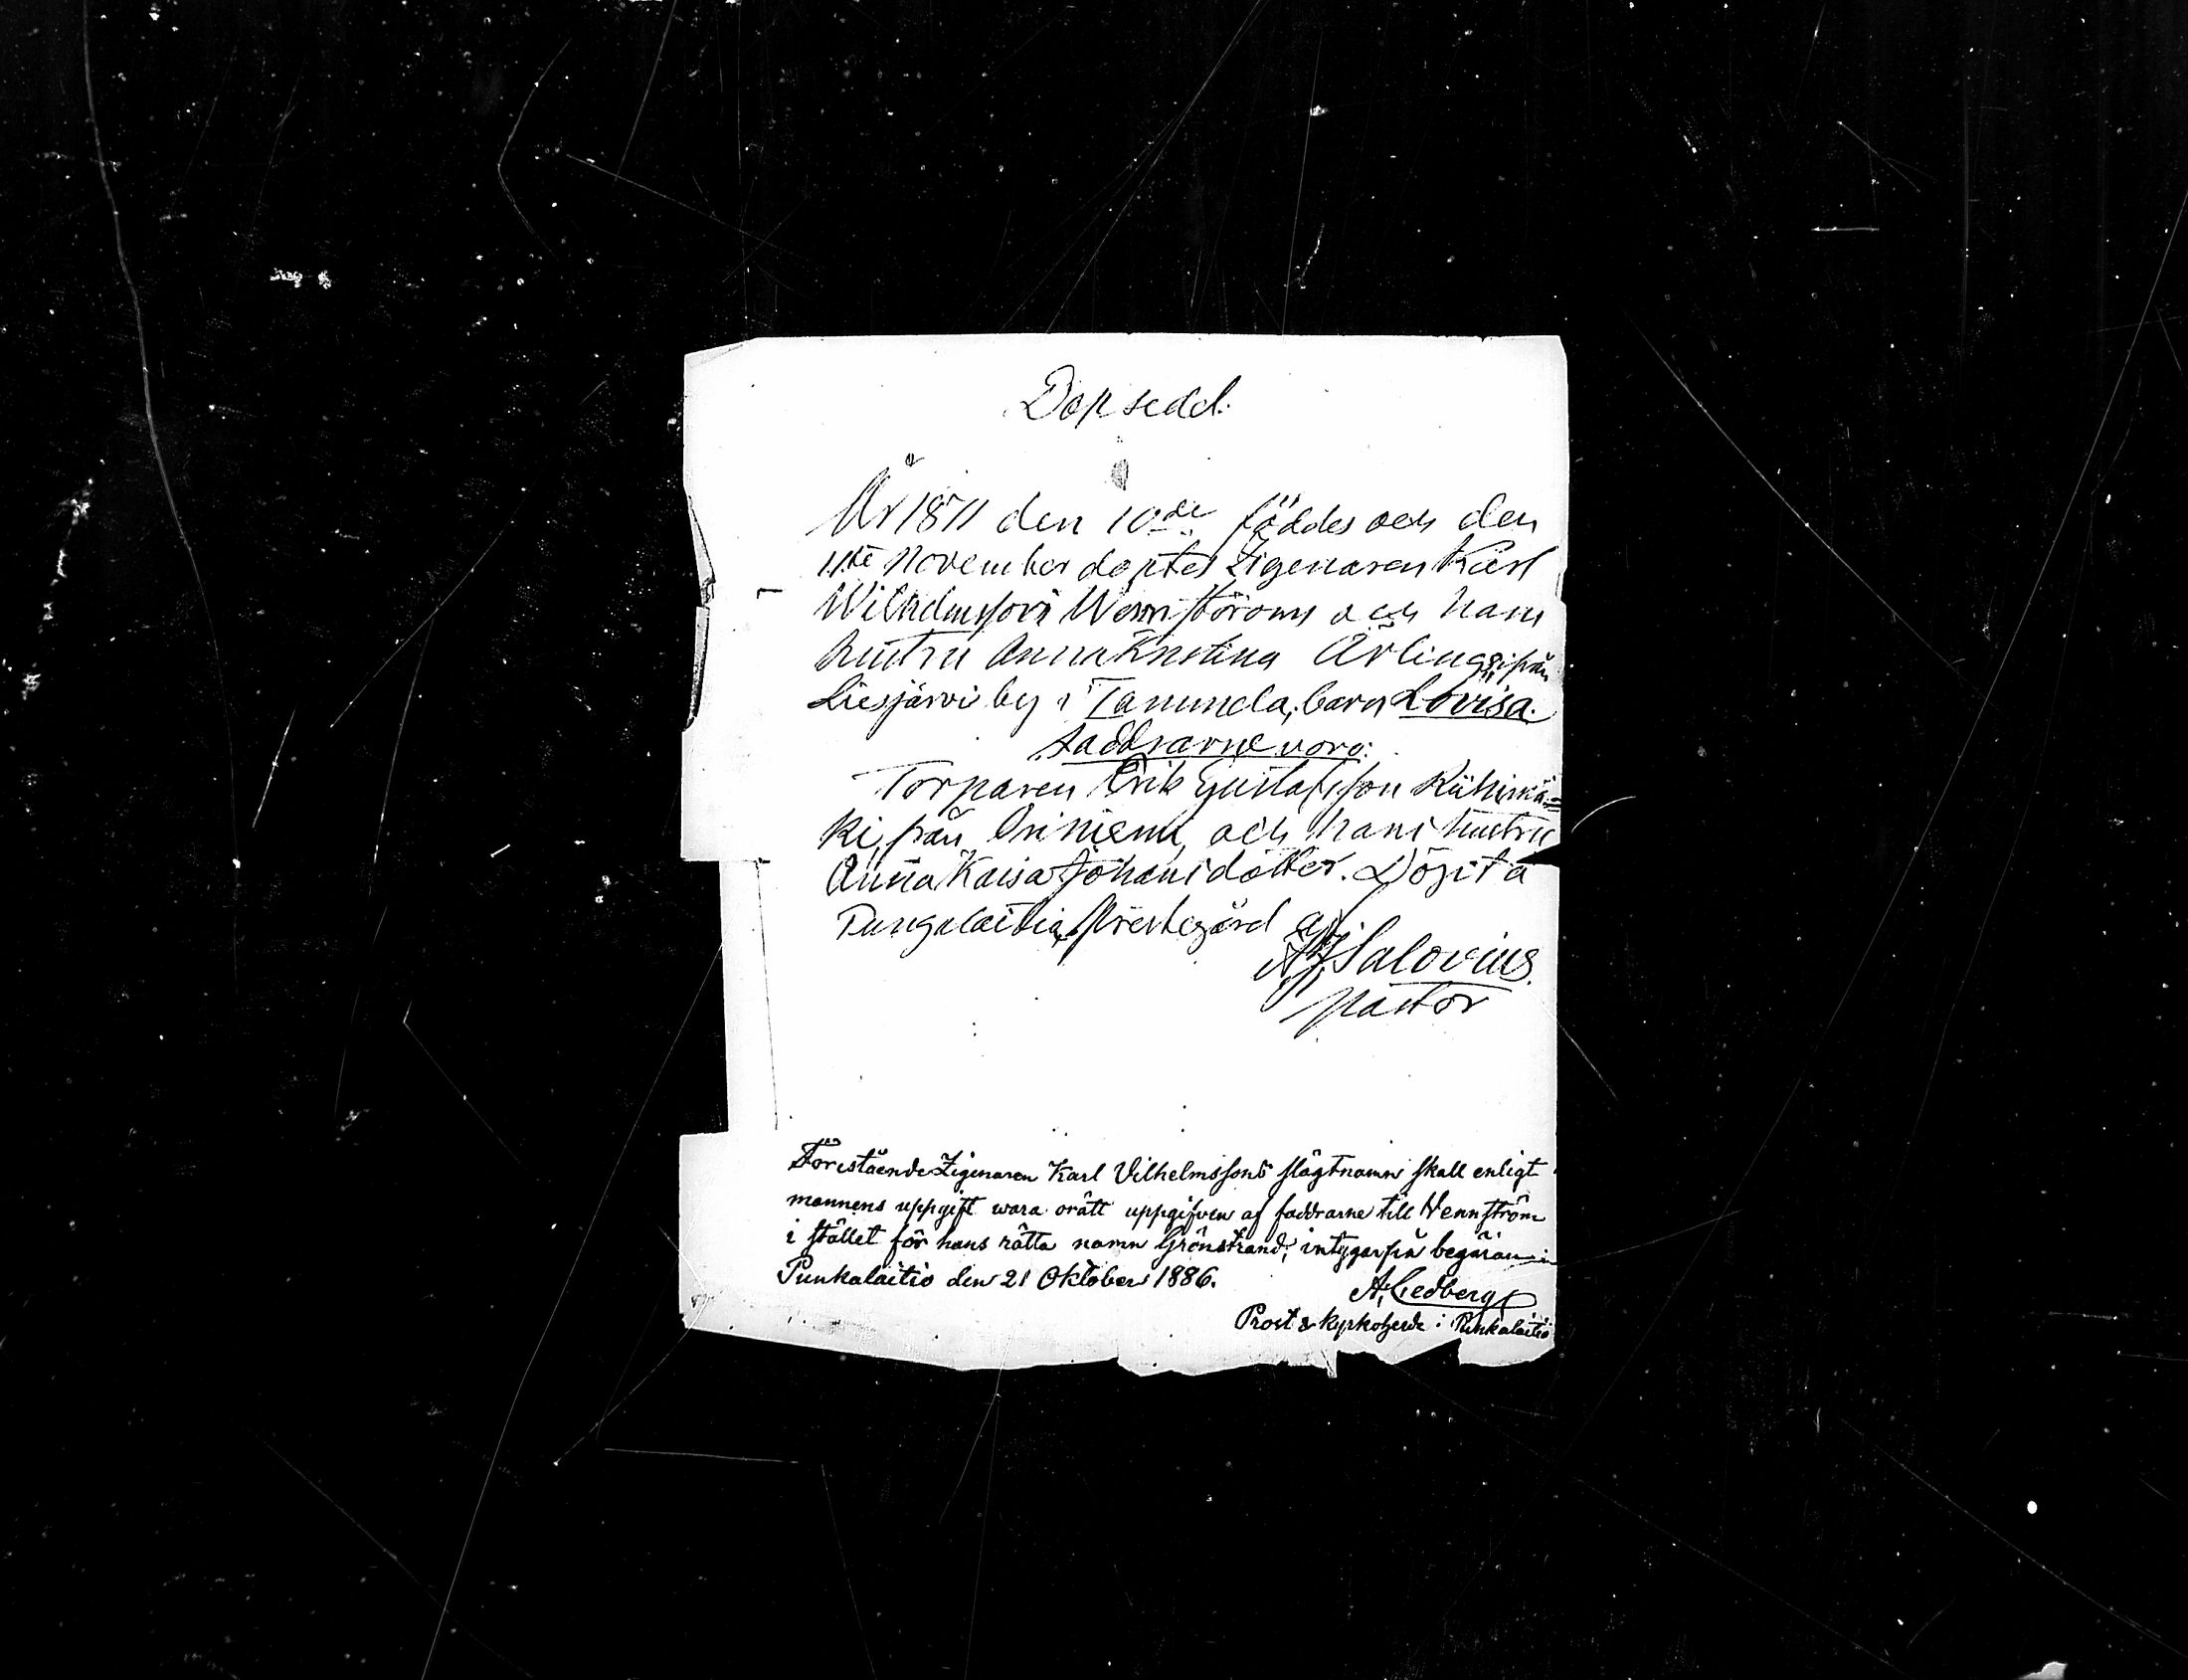 Dopsedel.
År 1871 den 10de föddes och den
11te November döptes Zigenaren Karl
Wilhelmsson Wennströms och hans
hustru Anna Kristina Ärlings, från
Liesjärvi by i Tammela, barn Lovisa.
Faddrarne voro:
Torparen Erik Gustafsson Riihimä=
ki, från Oriniemi, och hans hustru
Anna Kaisa Johansdotter. Döpt å
Pungalaitio Prestegård af
A J Salovius.
pastor
Förestående Zigenaren Karl Vilhelmssons slägtnamn skall enligt
mannens uppgift wara orätt uppgifven af faddrarne till Wennström
i stället för hans rätta namn Grönstrand, intygar på begäran i
Punkalaitio den 21 Oktober 1886.
A. Cedberg
Prost & Kyrkoherde i Punkalaitio